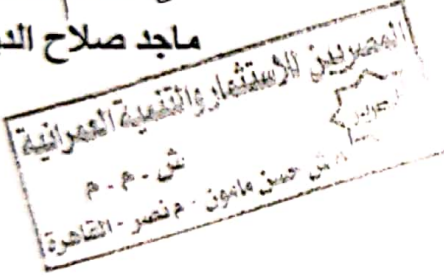 ماجد صلاح الد
المصريين للاستثمار والتنمية العمرانية
ش . م . م
ش حسن مامون - م نصر - القاهرة